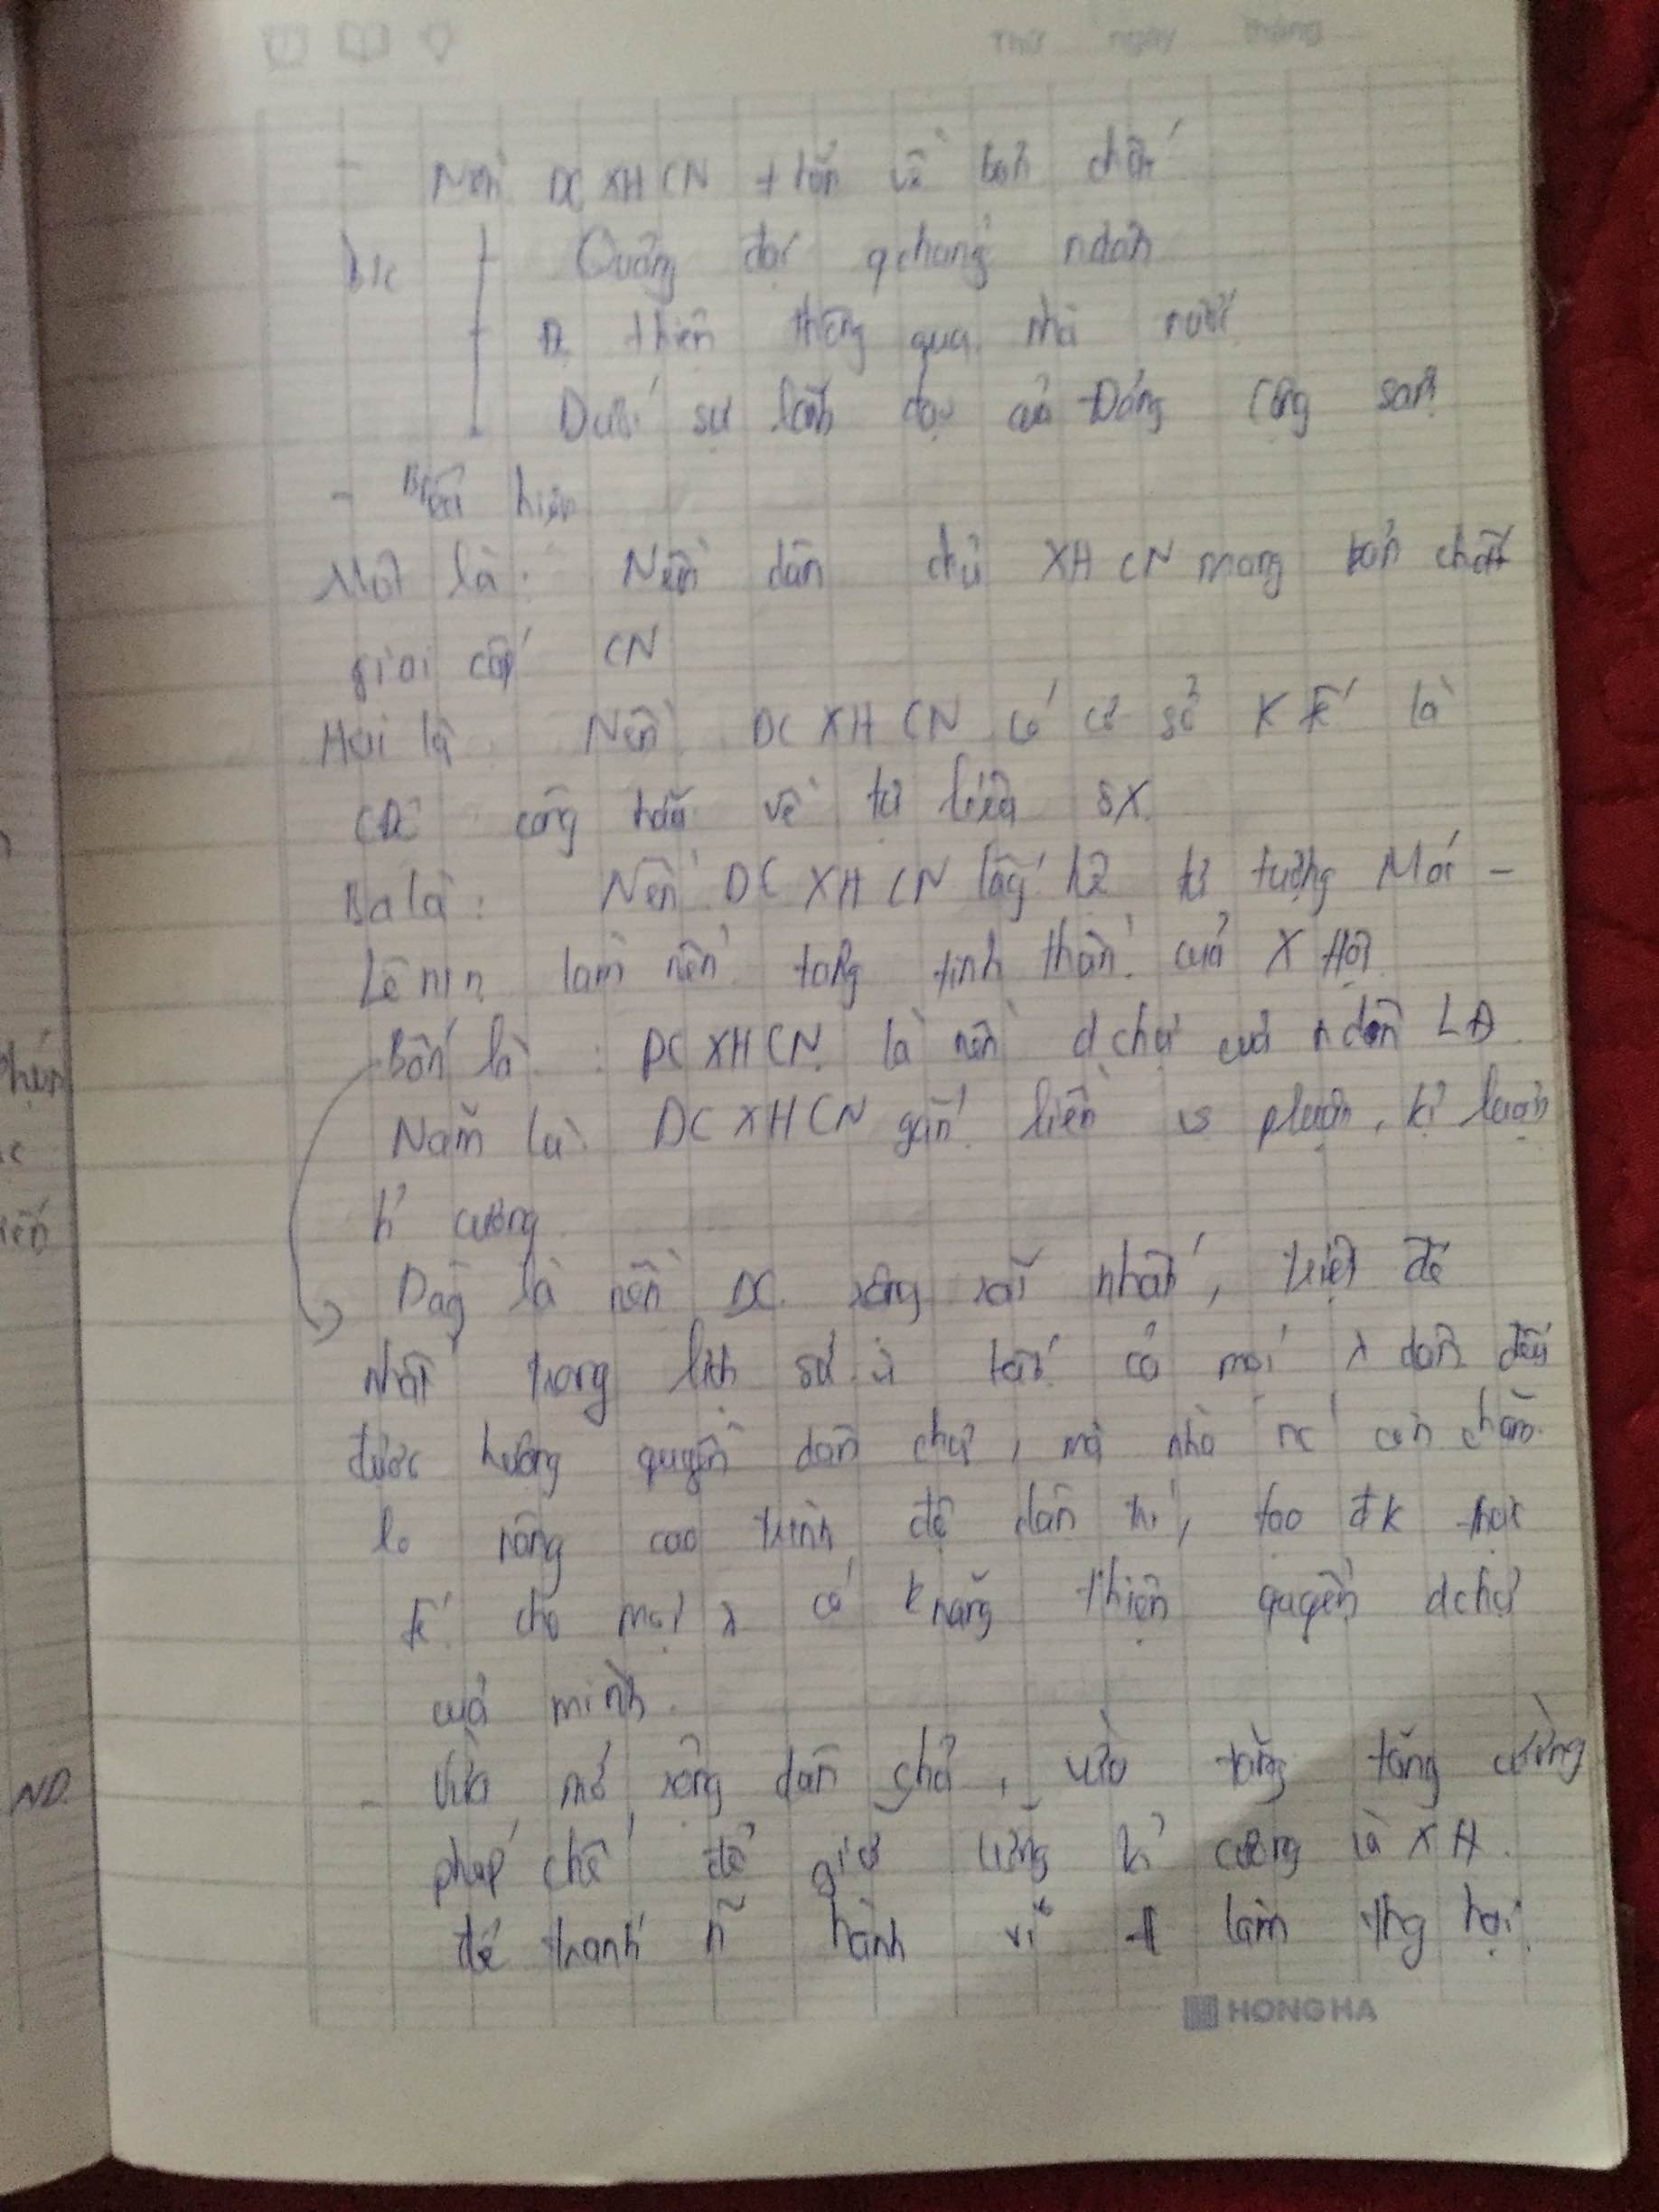 Thứ ngày tháng
- Nền DC XHCN + hơn về bản chất
Quảng đại qchúng ndân
Đ thiện thông qua nhà nước
Dưới sự lãnh đạo của Đảng Cộng sản
- Biểu hiện
Một là: Nền dân chủ XHCN mang bản chất
giai cấp CN
Hai là: Nền DC XHCN có cơ sở K tế là
CĐ công hữu về tư liệu SX.
Ba là: Nền DC XHCN lấy hệ tư tưởng Mác -
Lênin làm nền tảng tinh thần của X Hội
Bốn là: DC XHCN là nền dchủ của ndân LĐ.
Năm là: DC XHCN gắn liền vs pluật, kỉ luật
kỉ cương
Đây là nền DC rộng rãi nhất, triệt để
nhất trong lịch sử vì tất cả mọi λ dân đều
được hưởng quyền dân chủ, mà nhà nc còn chăm
lo nâng cao trình độ dân trí, tạo đk thực
tế cho mọi λ có knăng thiện quyền dchủ
của mình.
- Vừa mở rộng dân chủ, vừa tăng tăng cường
pháp chế để giữ vững kỉ cương là XH.
để tránh ~ hành vi làm thg hại.
ND.
HONG HA